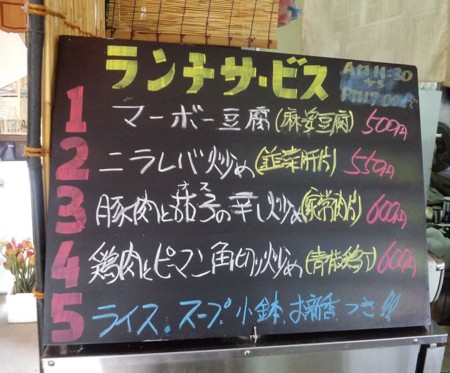 ランチサービス AM11:30
PM17:00
1 マーボー豆腐(麻婆豆腐) 500円
2 ニラレバ炒め(韮菜肝片) 550円
ナス
3 豚肉と茄子の辛し炒め(家常肉片) 600円
4 鶏肉とピーマン角切り炒め(青椒鶏丁) 600円
5 ライス。スープ 小鉢、お新香 つき!!